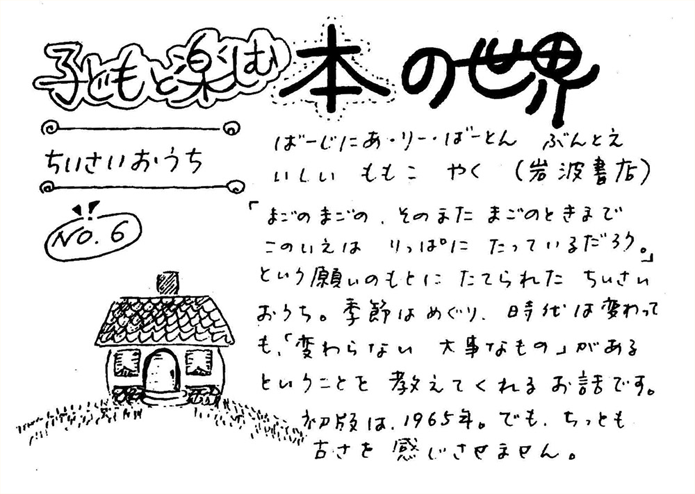 子どもと楽しむ 本の世界
ちいさいおうち
NO.6
ばーじにあ・りー・ばーとん ぶんとえ
いしい ももこ やく (岩波書店)
「まごのまごの、そのまた まごのときまで
このいえは りっぱに たっているだろう。」
という願いのもとに たてられた ちいさい
おうち。季節はめぐり、時代は変わって
も、「変わらない 大事なもの」がある
ということを 教えてくれる お話です。
初版は、1965年。でも、ちっとも
古さを 感じさせません。